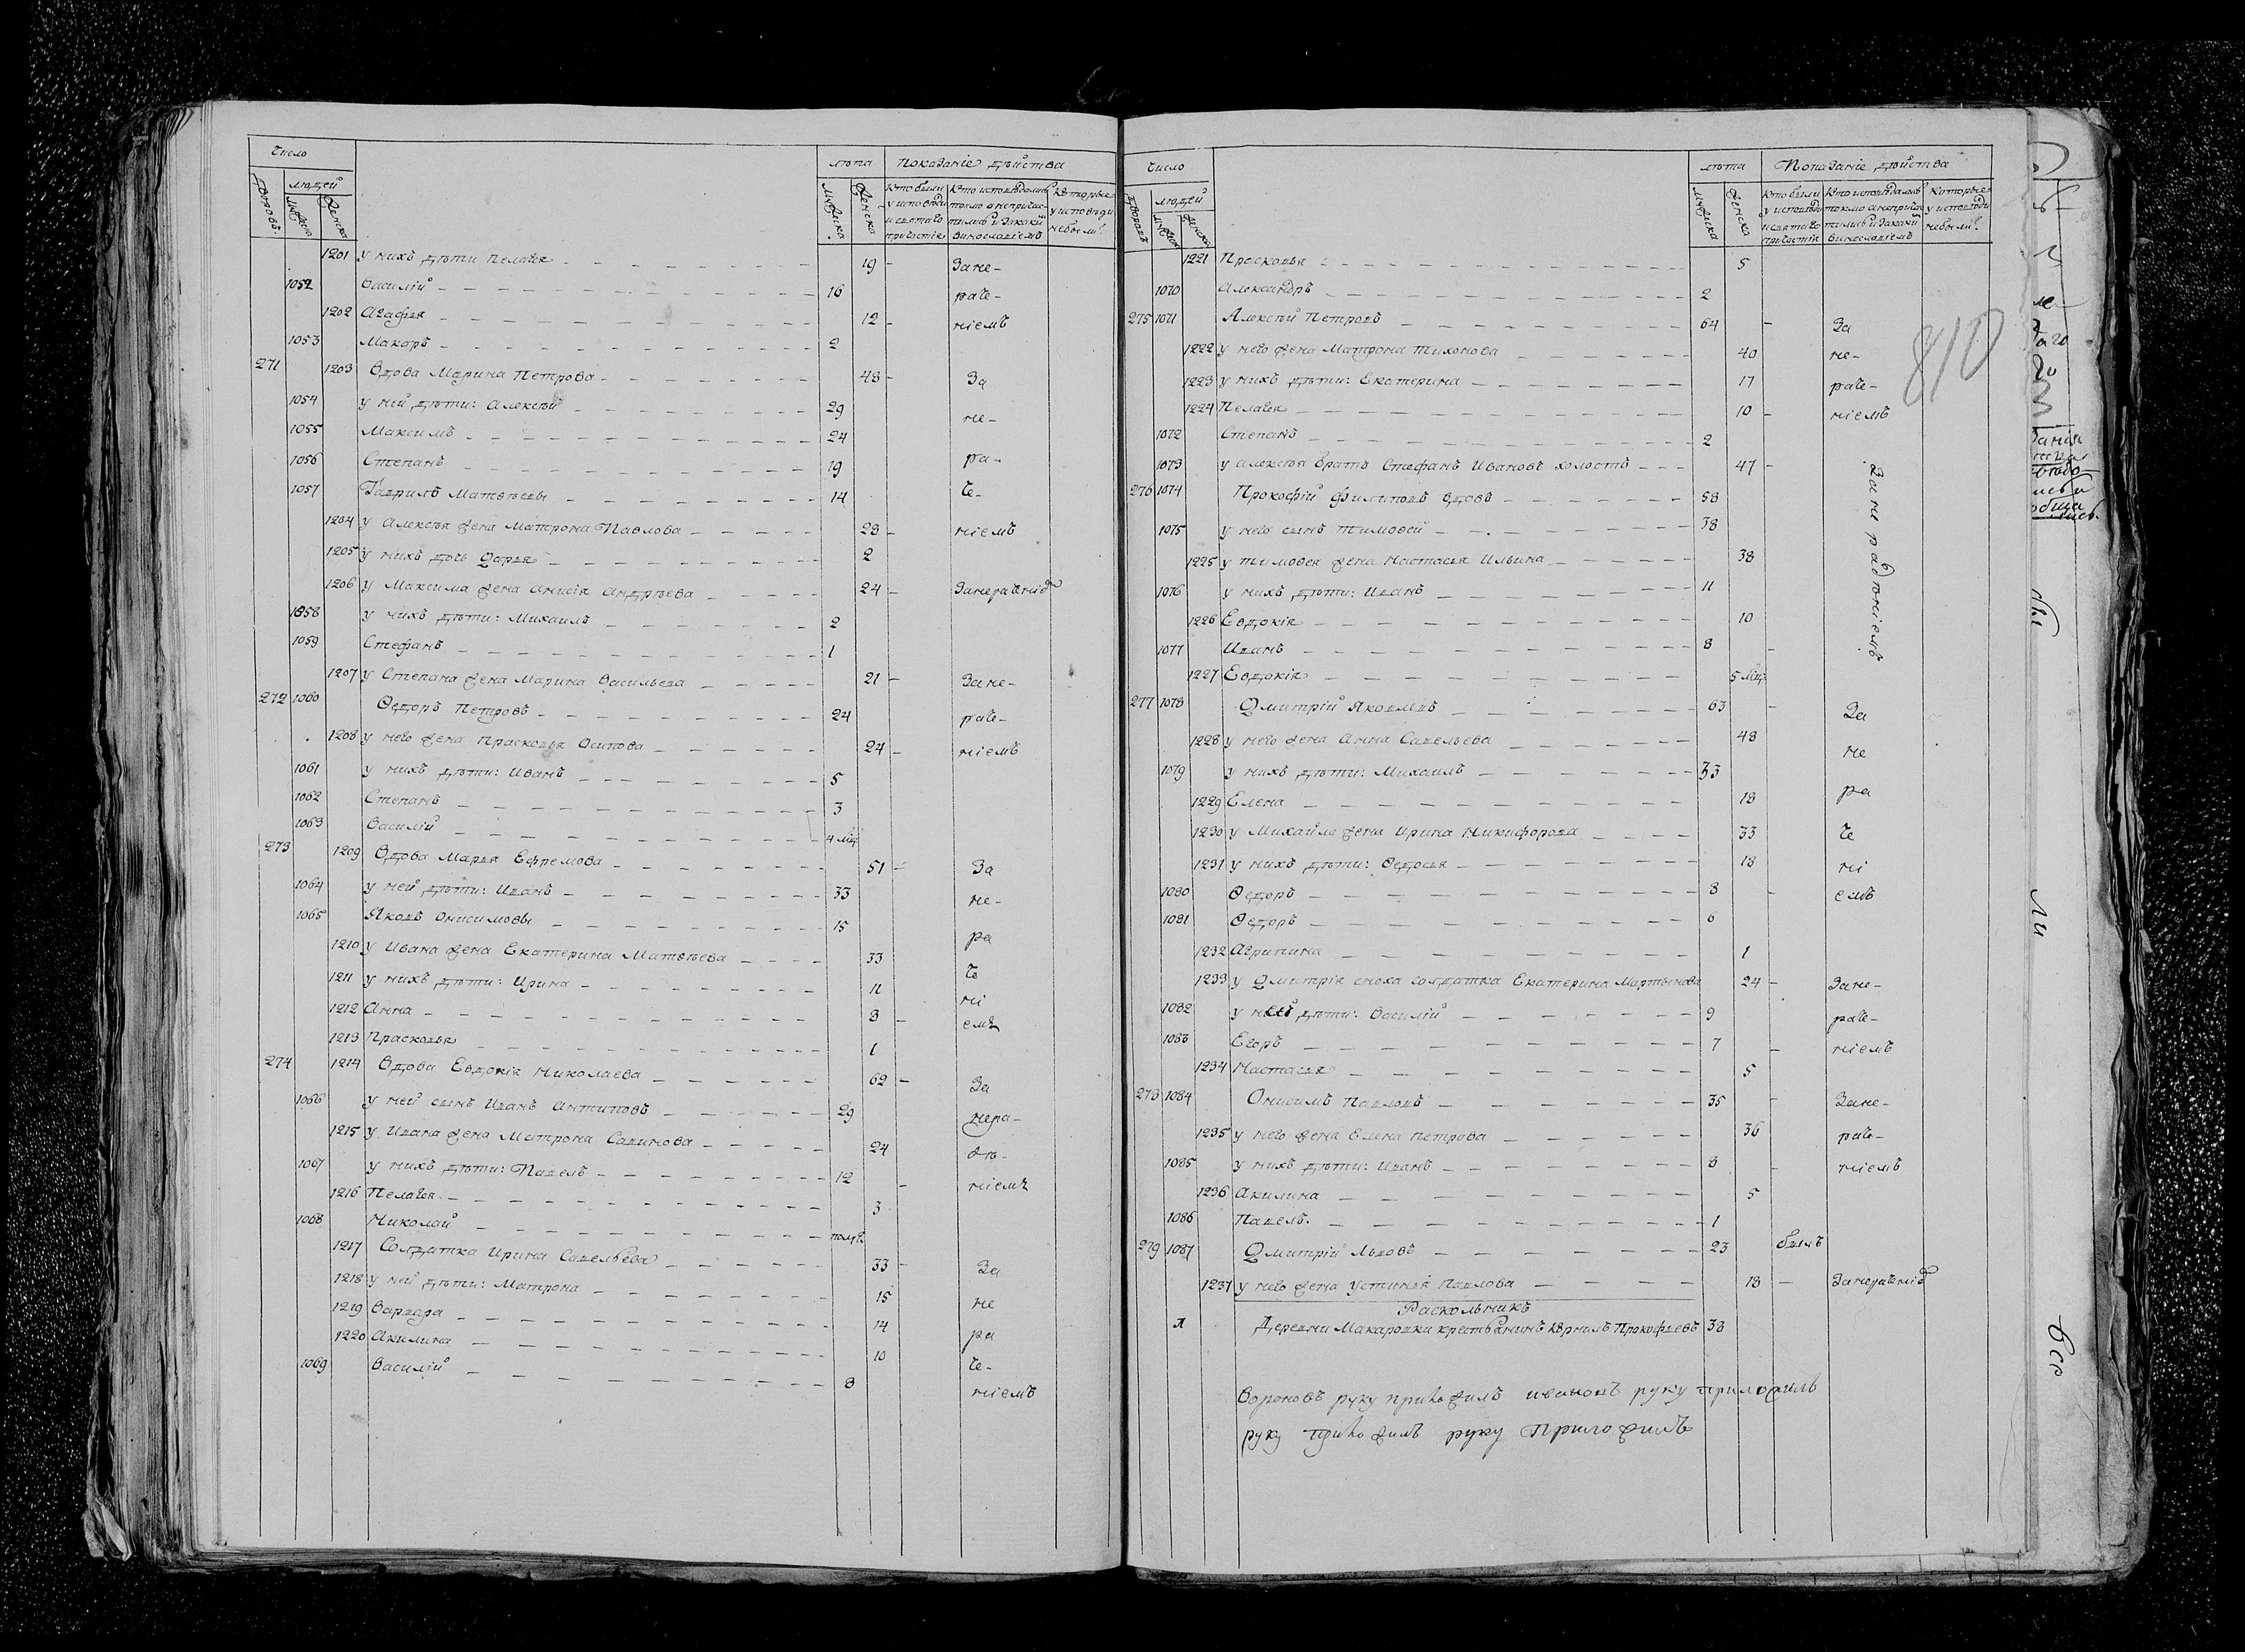 Число
лѣта Показаніе дѣйства
дворовъ людей
мужеска женска
мужеска женска
Кто были у исповѣди и святаго причастія
Кто исповѣдались токмо а не причастились и за какимъ винословіемъ
Которые у исповѣди не были
1201 у нихъ дѣти Пелагея 19 Зане-
1052 Василій 16 раче-
1202 Агафья 12 ніемъ
1053 Макаръ 2
271 1203 Вдова Марина Петрова 48 За
1054 у ней дѣти: Алексѣй 29 не-
1055 Максимъ 24
1056 Степанъ 19 ра-
1057 Гаврилъ Матвѣевы 14 че-
1204 у Алексѣя жена Матрона Павлова 28 ніемъ
1205 у нихъ дочь Дарья 2
1206 у Максима жена Анисія Андрѣева 24 Занераченіе
1058 у нихъ дѣти: Михаилъ 2
1059 Стефанъ 1
1207 у Степана жена Марина Васильева 21 Зане-
272 1060 Ѳедоръ Петровъ 24 раче-
1208 у него жена Прасковья Осипова 24 ніемъ
1061 у нихъ дѣти: Иванъ 5
1062 Степанъ 3
1063 Василій 4 мц
273 1209 Вдова Марья Ефремова 51 За
1064 у ней дѣти: Иванъ 33 не-
1065 Яковъ Онисимовы 15 ра
1210 у Ивана жена Екатерина Матвѣева 33 че
1211 у нихъ дѣти: Ирина 11 ні
1212 Анна 8 емъ
1213 Прасковья 1
274 1214 Вдова Евдокія Николаева 62 За
1066 у ней сынъ Иванъ Антиповъ 29 нера-
1215 у Ивана жена Матрона Савинова 24 дѣ-
1067 у нихъ дѣти: Павелъ 12 ніемъ
1216 Пелагея 3
1068 Николай полг.
1217 Солдатка Ирина Савельева 33 За
1218 у ней дѣти: Матрона 15 не
1219 Варвара 14 ра
1220 Акилина 10 че-
1069 Василій 8 ніемъ
Число
лѣта Показаніе дѣйства
дворовъ людей
мужеска женска
мужеска женска
Кто были у исповѣди и святаго причастія
Кто исповѣдались токмо а не причастились и за какимъ винословіемъ
Которые у исповѣди не были
1221 Прасковья 5
1070 Александръ 2
275 1071 Алексѣй Петровъ 64 За
1222 у него жена Матрона Тихонова 40 не-
810
1223 у нихъ дѣти: Екатерина 17 раче-
1224 Пелагея 10 ніемъ
1072 Степанъ 2
1073 у Алексѣя братъ Стефанъ Ивановъ холостъ 47
276 1074 Прокофій Филиповъ вдовъ 58
1075 у него сынъ Тимоѳей 38
1225 у Тимоѳея жена Настасья Ильина 38
1076 у нихъ дѣти: Иванъ 11
1226 Евдокія 10
1077 Иванъ 8
1227 Евдокія 5 мц
277 1078 Дмитрій Яковлевъ 63 За
1228 у него жена Анна Савельева 48 не
1079 у нихъ дѣти: Михаилъ 33
1229 Елена 18 ра
1230 у Михайла жена Ирина Никифорова 33 че
1231 у нихъ дѣти: Ѳедосья 18 ні
1080 Ѳедоръ 8 емъ
1081 Ѳедоръ 6
1232 Агрипина 1
1233 у Дмитрія сноха солдатка Екатерина Мартынова 24 Зане-
1082 у ней дѣти: Василій 9 раче-
1083 Егоръ 7 ніемъ
1234 Настасья 5
278 1084 Онисимъ Павловъ 35 Зане-
1235 у него жена Елена Петрова 36 раче-
1085 у нихъ дѣти: Иванъ 8 ніемъ
1236 Акилина 5
1086 Павелъ 1
279 1087 Дмитрій Львовъ 23 былъ
1237 у него жена Устинья Павлова 18 Занераченіе
Раскольникъ
Деревни Макаровки крестьянинъ Корнилъ Прокофьевъ 38
Вороновъ руку приложилъ ивановъ руку приложилъ
руку приложилъ руку приложилъ